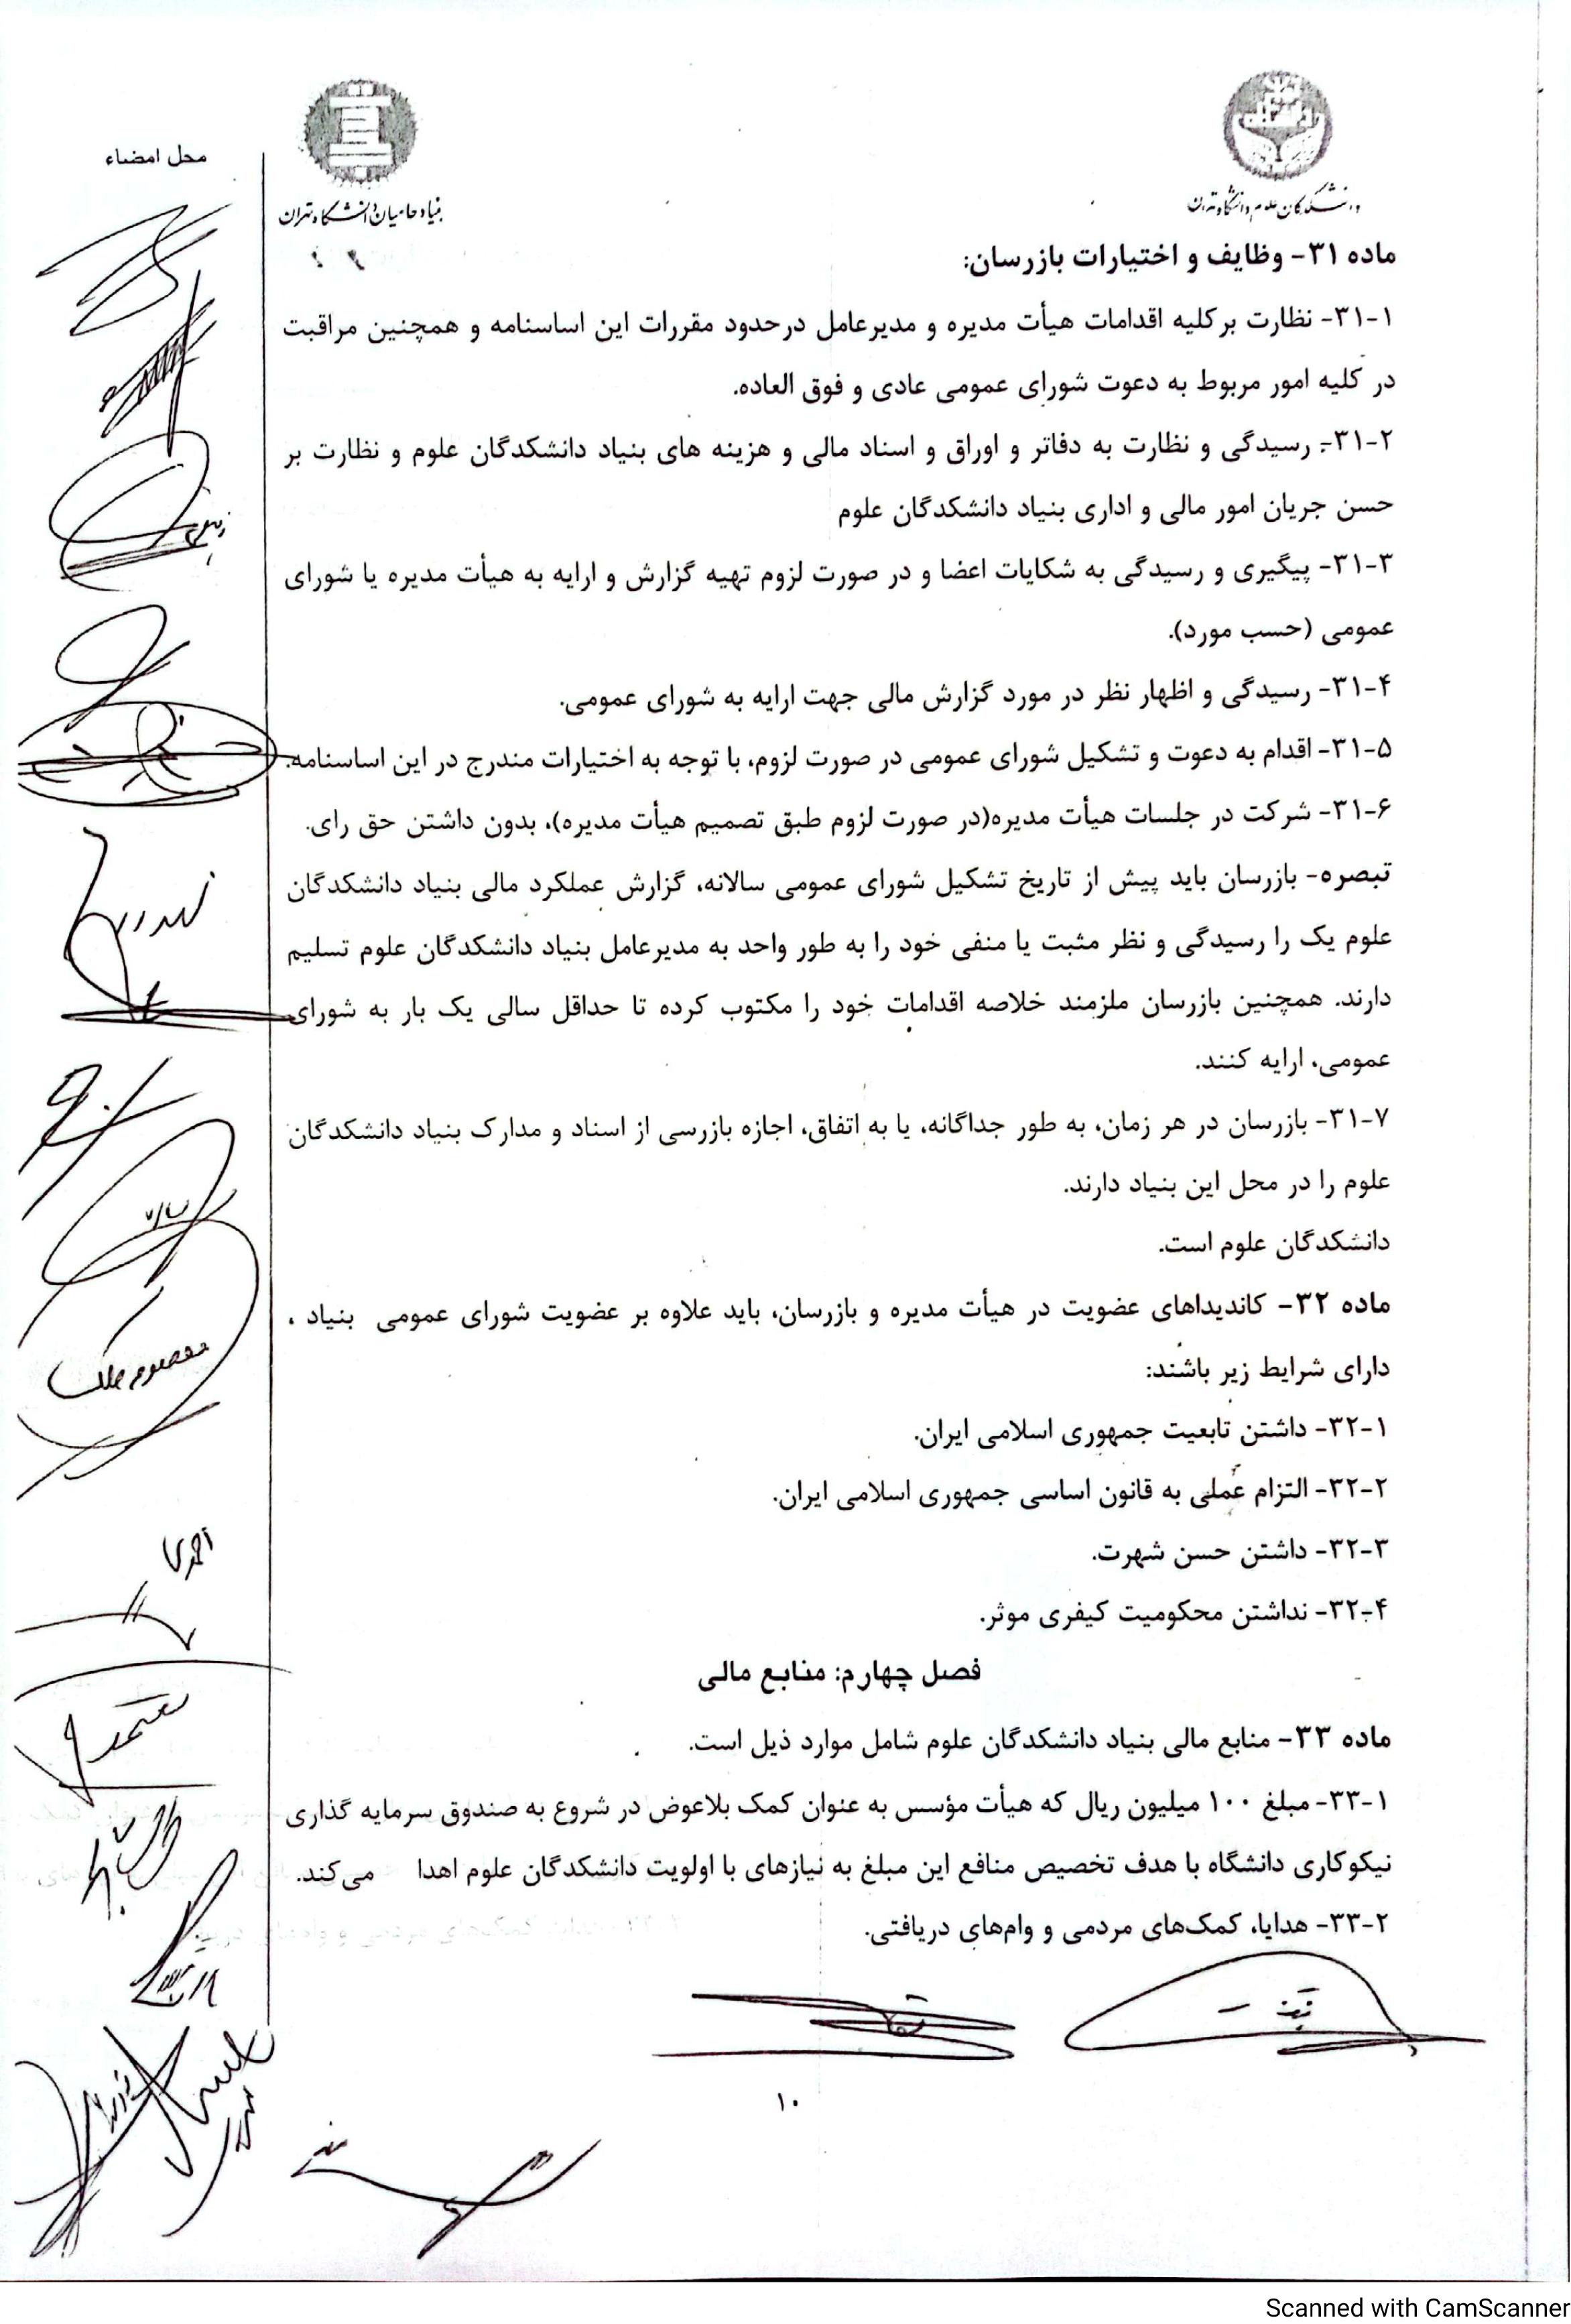 دانشکدگان علوم دانشگاه تهران
بنیاد حامیان دانشگاه تهران
محل امضاء
ماده ۳۱- وظایف و اختیارات بازرسان:
۳۱-۱- نظارت برکلیه اقدامات هیأت مدیره و مدیرعامل درحدود مقررات این اساسنامه و همچنین مراقبت
در کلیه امور مربوط به دعوت شورای عمومی عادی و فوق العاده.
۳۱-۲- رسیدگی و نظارت به دفاتر و اوراق و اسناد مالی و هزینه های بنیاد دانشکدگان علوم و نظارت بر
حسن جریان امور مالی و اداری بنیاد دانشکدگان علوم
۳۱-۳- پیگیری و رسیدگی به شکایات اعضا و در صورت لزوم تهیه گزارش و ارایه به هیأت مدیره یا شورای
عمومی (حسب مورد).
۳۱-۴- رسیدگی و اظهار نظر در مورد گزارش مالی جهت ارایه به شورای عمومی.
۳۱-۵- اقدام به دعوت و تشکیل شورای عمومی در صورت لزوم، با توجه به اختیارات مندرج در این اساسنامه.
۳۱-۶- شرکت در جلسات هیأت مدیره(در صورت لزوم طبق تصمیم هیأت مدیره)، بدون داشتن حق رای.
تبصره- بازرسان باید پیش از تاریخ تشکیل شورای عمومی سالانه، گزارش عملکرد مالی بنیاد دانشکدگان
علوم یک را رسیدگی و نظر مثبت یا منفی خود را به طور واحد به مدیرعامل بنیاد دانشکدگان علوم تسلیم
دارند. همچنین بازرسان ملزمند خلاصه اقدامات خود را مکتوب کرده تا حداقل سالی یک بار به شورای
عمومی، ارایه کنند.
۳۱-۷- بازرسان در هر زمان، به طور جداگانه، یا به اتفاق، اجازه بازرسی از اسناد و مدارک بنیاد دانشکدگان
علوم را در محل این بنیاد دارند.
دانشکدگان علوم است.
ماده ۳۲- کاندیداهای عضویت در هیأت مدیره و بازرسان، باید علاوه بر عضویت شورای عمومی بنیاد ،
دارای شرایط زیر باشند:
۳۲-۱- داشتن تابعیت جمهوری اسلامی ایران.
۳۲-۲- التزام عملی به قانون اساسی جمهوری اسلامی ایران.
۳۲-۳- داشتن حسن شهرت.
۳۲-۴- نداشتن محکومیت کیفری موثر.
فصل چهارم: منابع مالی
ماده ۳۳- منابع مالی بنیاد دانشکدگان علوم شامل موارد ذیل است.
۳۳-۱- مبلغ ۱۰۰ میلیون ریال که هیأت مؤسس به عنوان کمک بلاعوض در شروع به صندوق سرمایه گذاری
نیکوکاری دانشگاه با هدف تخصیص منافع این مبلغ به نیازهای با اولویت دانشکدگان علوم اهدا می‌کند.
۳۳-۲- هدایا، کمک‌های مردمی و وام‌های دریافتی.
۱۰
Scanned with CamScanner